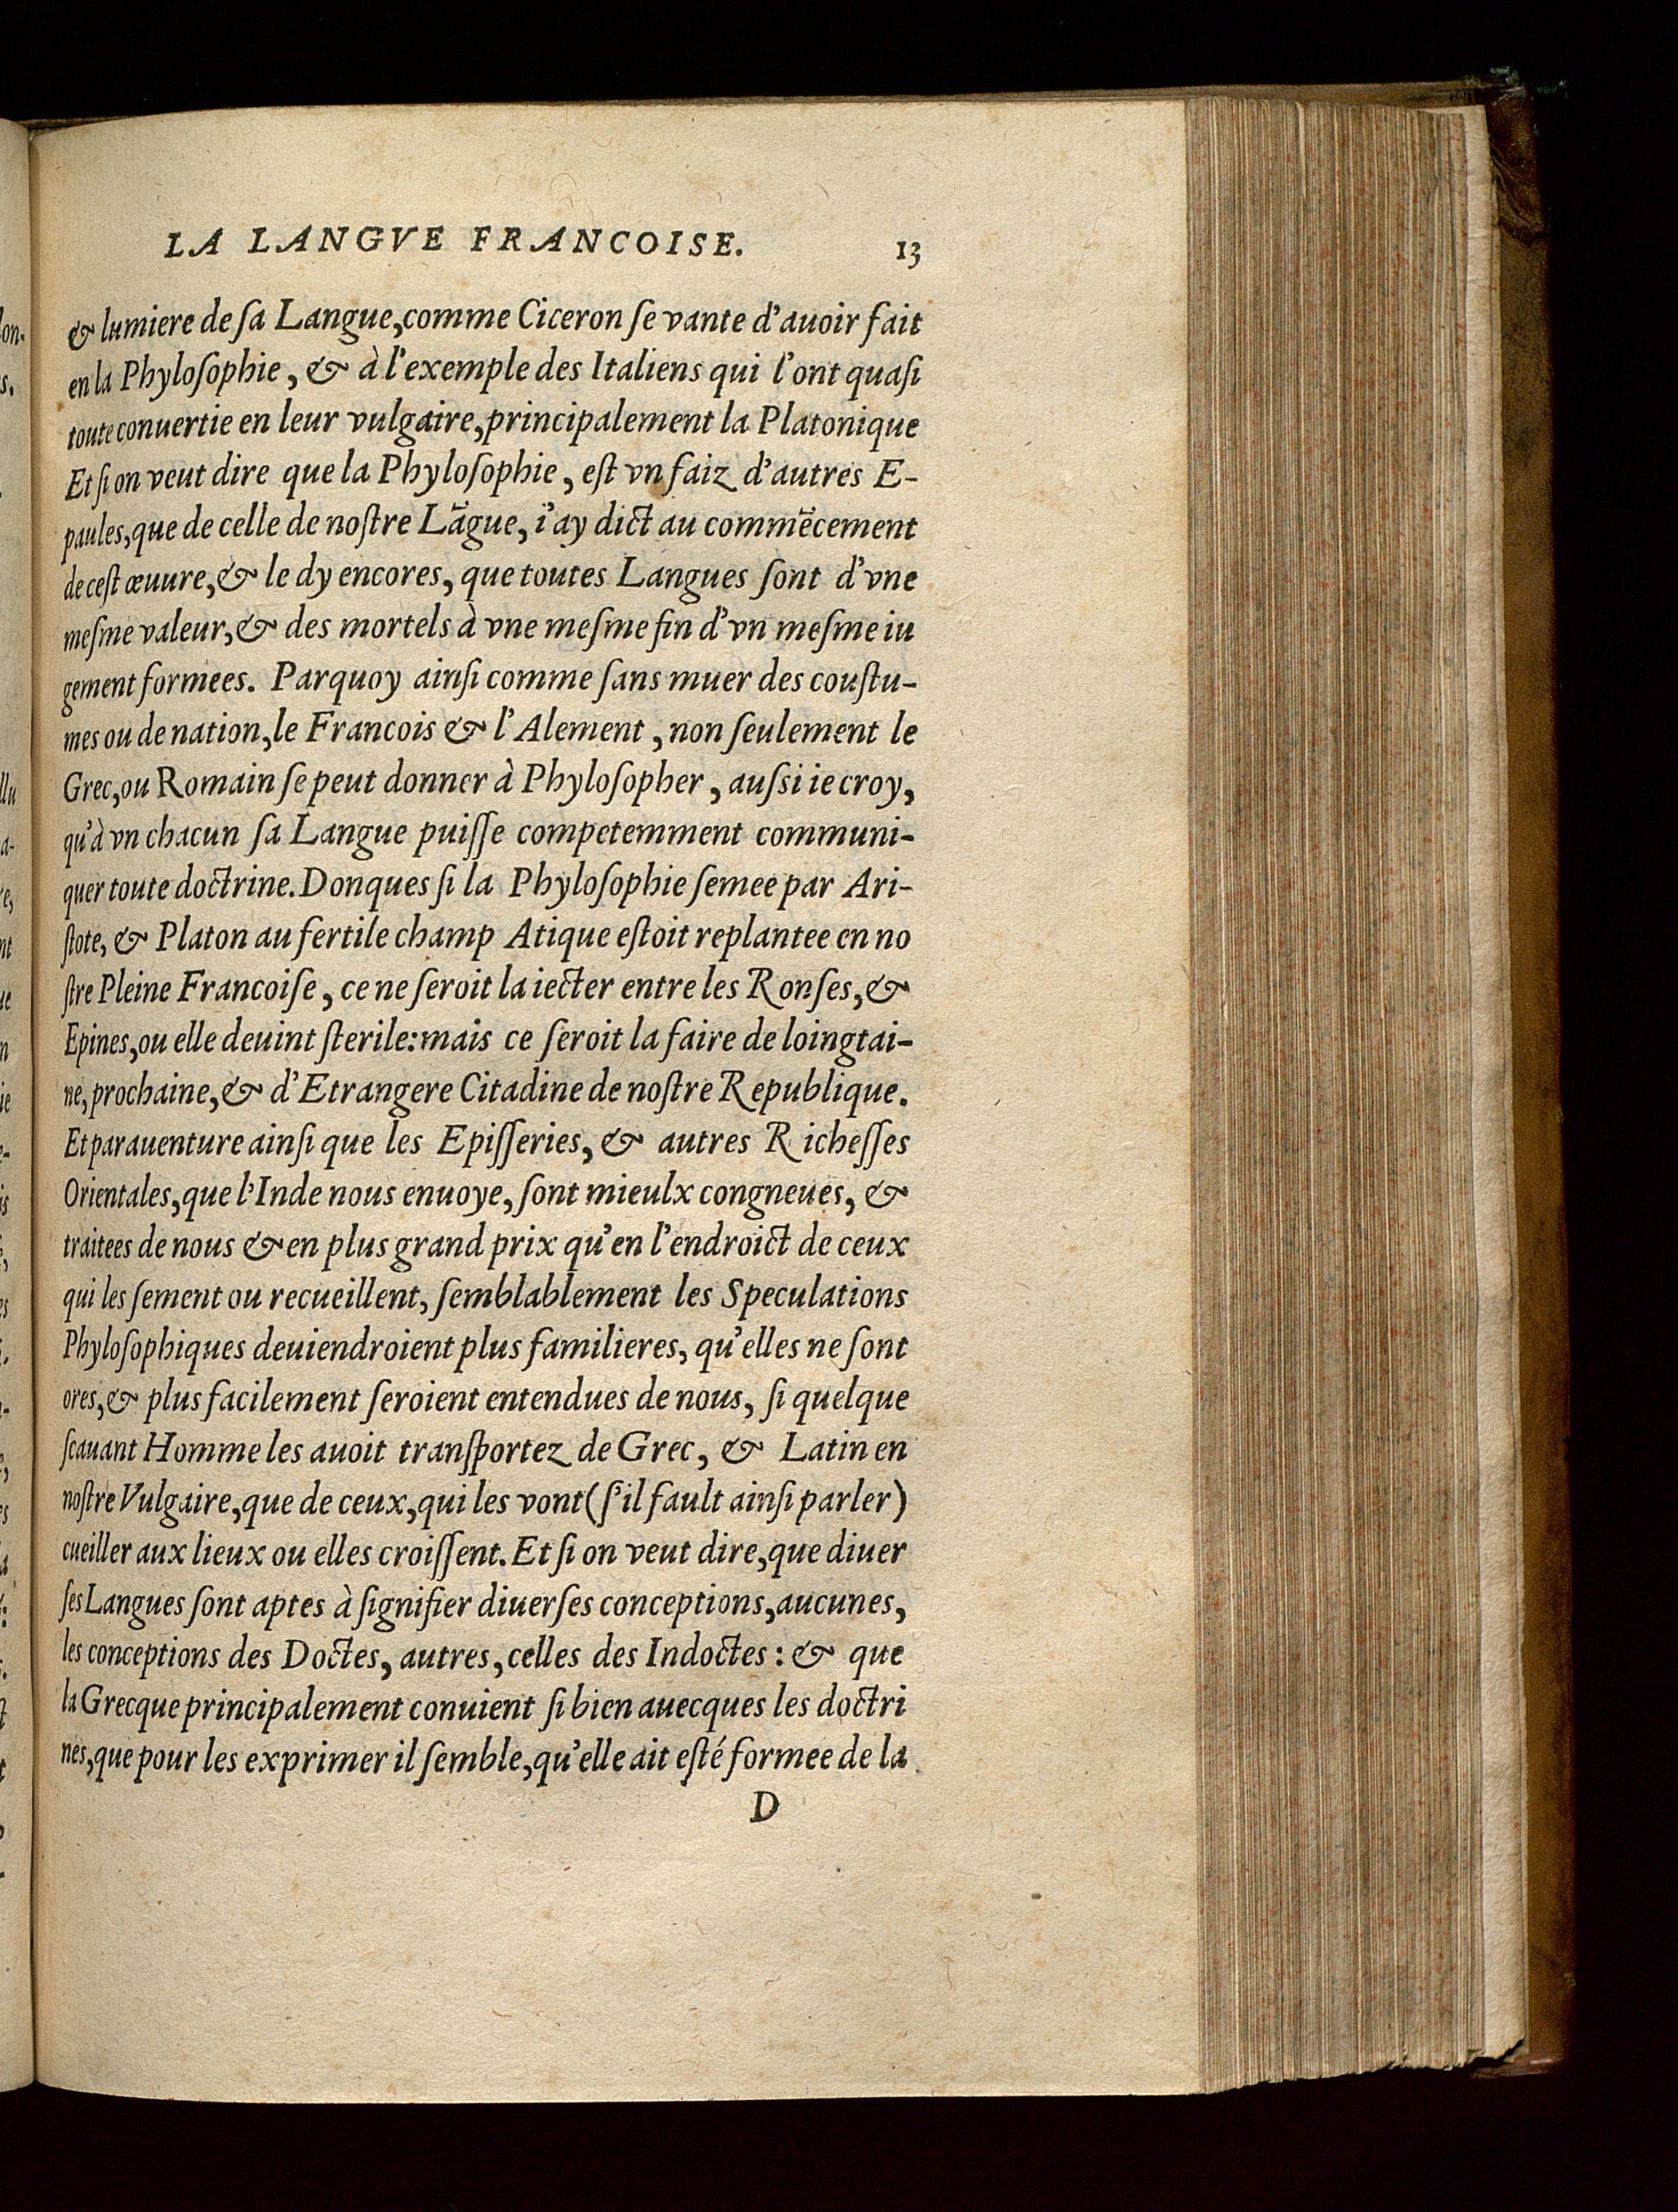 LA LANGVE FRANCOISE. 13
& lumiere de ſa Langue, comme Ciceron ſe vante d'auoir fait
en la Phyloſophie, & à l'exemple des Italiens qui l'ont quaſi
toute conuertie en leur vulgaire, principalement la Platonique
Et ſi on veut dire que la Phyloſophie, eſt vn faiz d'autres E-
paules, que de celle de noſtre Lãgue, i'ay dict au commẽcement
de ceſt œuure, & le dy encores, que toutes Langues ſont d'vne
meſme valeur, & des mortels à vne meſme fin d'vn meſme iu
gement formees. Parquoy ainſi comme ſans muer des couſtu-
mes ou de nation, le Francois & l'Alement, non ſeulement le
Grec, ou Romain ſe peut donner à Phyloſopher, auſsi ie croy,
qu'à vn chacun ſa Langue puiſſe competemment communi-
quer toute doctrine. Donques ſi la Phyloſophie ſemee par Ari-
ſtote, & Platon au fertile champ Atique eſtoit replantee en no
ſtre Pleine Francoiſe, ce ne ſeroit la iecter entre les Ronſes, &
Epines, ou elle deuint ſterile: mais ce ſeroit la faire de loingtai-
ne, prochaine, & d'Etrangere Citadine de noſtre Republique.
Et parauenture ainſi que les Epiſſeries, & autres Richeſſes
Orientales, que l'Inde nous enuoye, ſont mieulx congneues, &
traitees de nous & en plus grand prix qu'en l'endroict de ceux
qui les ſement ou recueillent, ſemblablement les Speculations
Phyloſophiques deuiendroient plus familieres, qu'elles ne ſont
ores, & plus facilement ſeroient entendues de nous, ſi quelque
ſcauant Homme les auoit tranſportez de Grec, & Latin en
noſtre Vulgaire, que de ceux, qui les vont (ſ'il fault ainſi parler)
cueiller aux lieux ou elles croiſſent. Et ſi on veut dire, que diuer
ſes Langues ſont aptes à ſignifier diuerſes conceptions, aucunes,
les conceptions des Doctes, autres, celles des Indoctes: & que
la Grecque principalement conuient ſi bien auecques les doctri
nes, que pour les exprimer il ſemble, qu'elle ait eſté formee de la
D